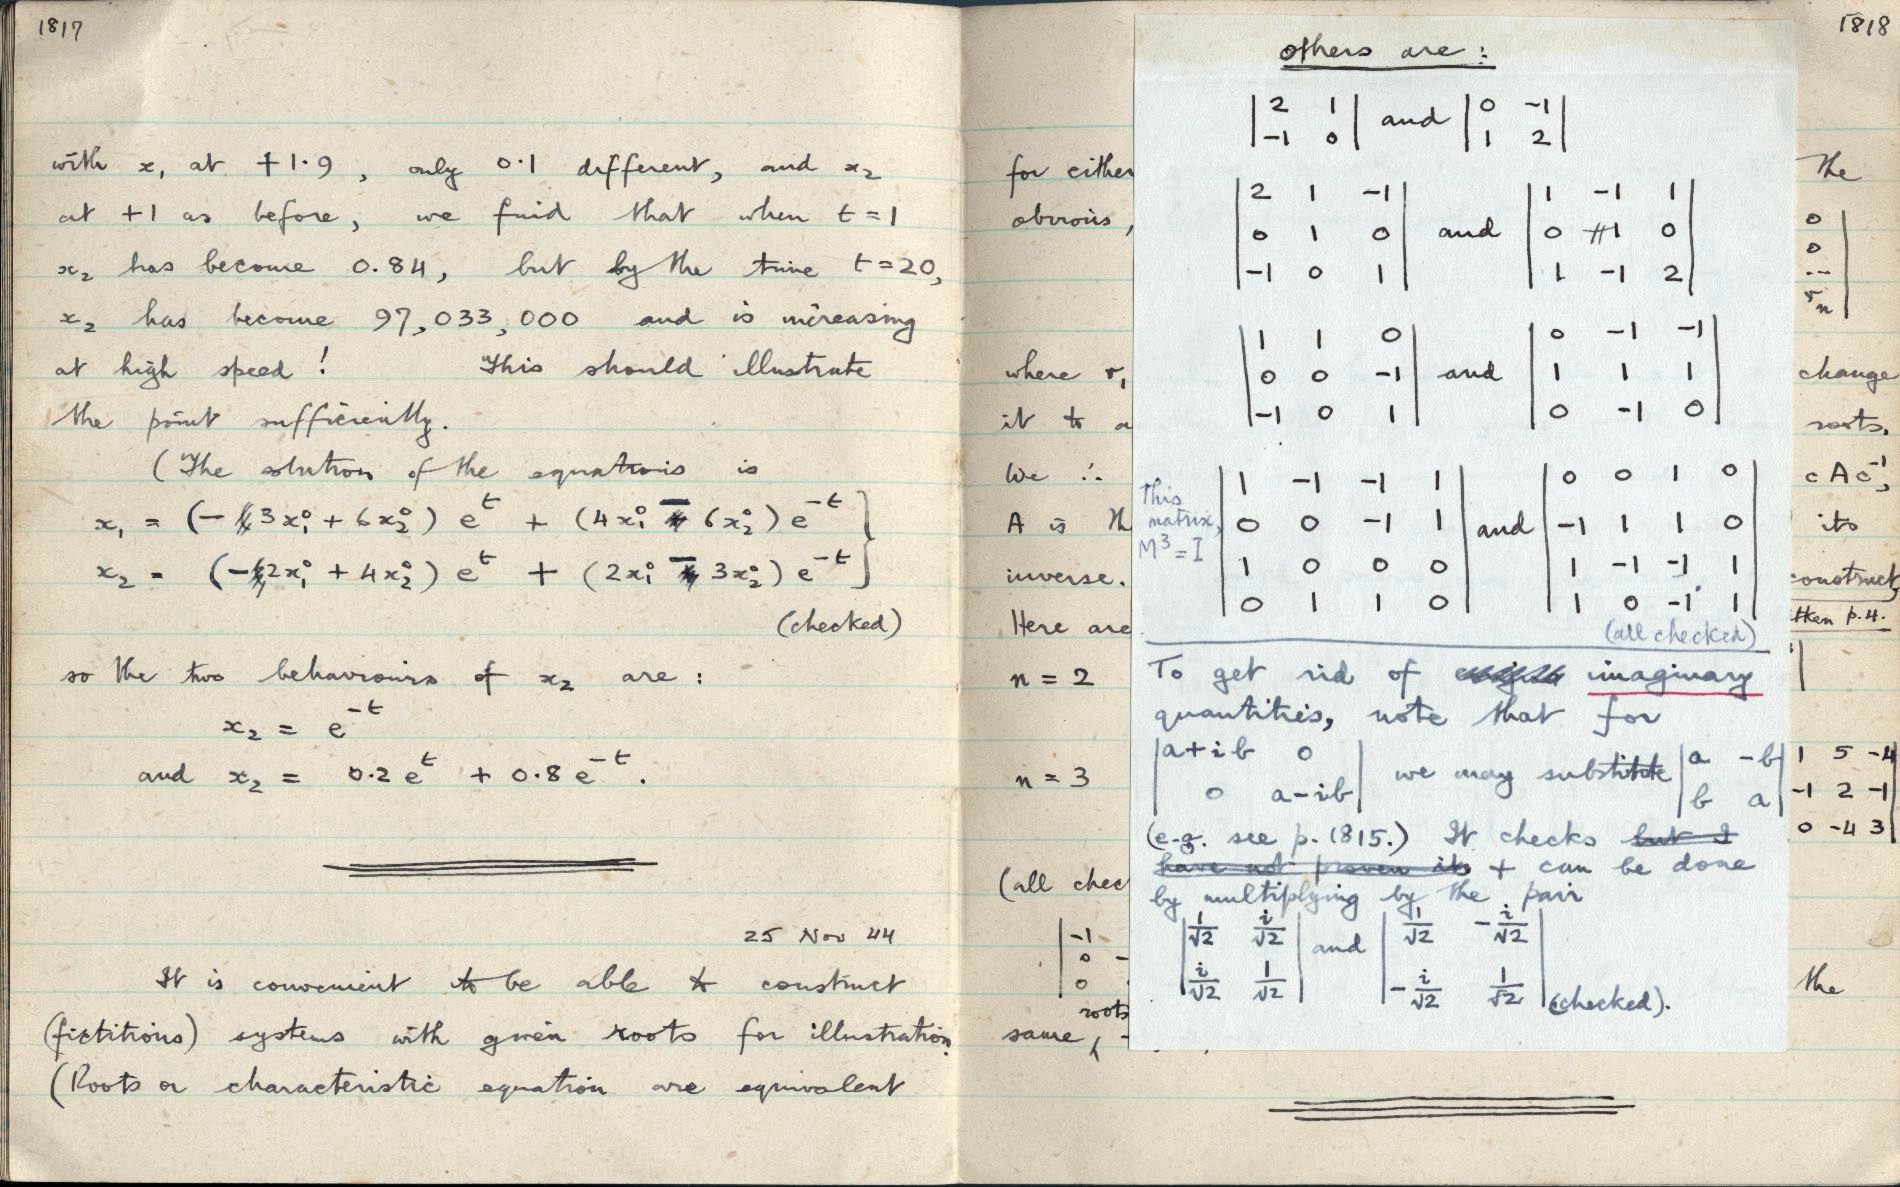 1817
with x₁ at +1·9 , only 0·1 different, and x₂
at +1 as before, we find that when t = 1
x₂ has become 0.84, but by the time t = 20,
x₂ has become 97,033,000 and is increasing
at high speed ! This should illustrate
the point sufficiently.
(The solution of the equations is
x₁ = (-3x₁° + 6x₂°) e^t + (4x₁° - 6x₂°) e^-t
x₂ = (-2x₁° + 4x₂°) e^t + (2x₁° - 3x₂°) e^-t
(checked)
so the two behaviours of x₂ are :
x₂ = e^-t
and x₂ = 0.2 e^t + 0.8 e^-t.
25 Nov 44
It is convenient to be able to construct
(fictitious) systems with given roots for illustration.
(Roots or characteristic equation are equivalent
1818
for either
obvious,
where r₁
it to a
We ∴
A is th
inverse.
Here are
n = 2
n = 3
(all chec
-1
0 -
0
roots
same, (
others are :
| 2 1 | and | 0 -1 |
| -1 0 | | 1 2 |
| 2 1 -1 | | 1 -1 1 |
| 0 1 0 | and | 0 1 0 |
| -1 0 1 | | 1 -1 2 |
| 1 1 0 | | 0 -1 -1 |
| 0 0 -1 | and | 1 1 1 |
| -1 0 1 | | 0 -1 0 |
This
matrix,
M³ = I
| 1 -1 -1 1 | | 0 0 1 0 |
| 0 0 -1 1 | and | -1 1 1 0 |
| 1 0 0 0 | | 1 -1 -1 1 |
| 0 1 1 0 | | 1 0 -1 1 |
(all checked)
To get rid of imaginary
quantities, note that for
| a+ib 0 | we may substitute | a -b |
| 0 a-ib | | b a |
(e.g. see p. 1815.) It checks but I
have not proven it + can be done
by multiplying by the pair
| 1/√2 i/√2 | and | 1/√2 -i/√2 |
| i/√2 1/√2 | | -i/√2 1/√2 | (checked).
The
0
0
--
rₙ
change
roots.
cAc⁻¹,
its
construct,
p.4.
1 5 -4
-1 2 -1
0 -4 3
the